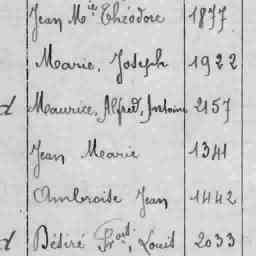 Jean Mie Théodore 1877
Marie, Joseph 1922
d Maurice, Alfred, Antoine 2157
Jean Marie 1341
Ambroise Jean 1442
d Désiré Frois, Louis 2033